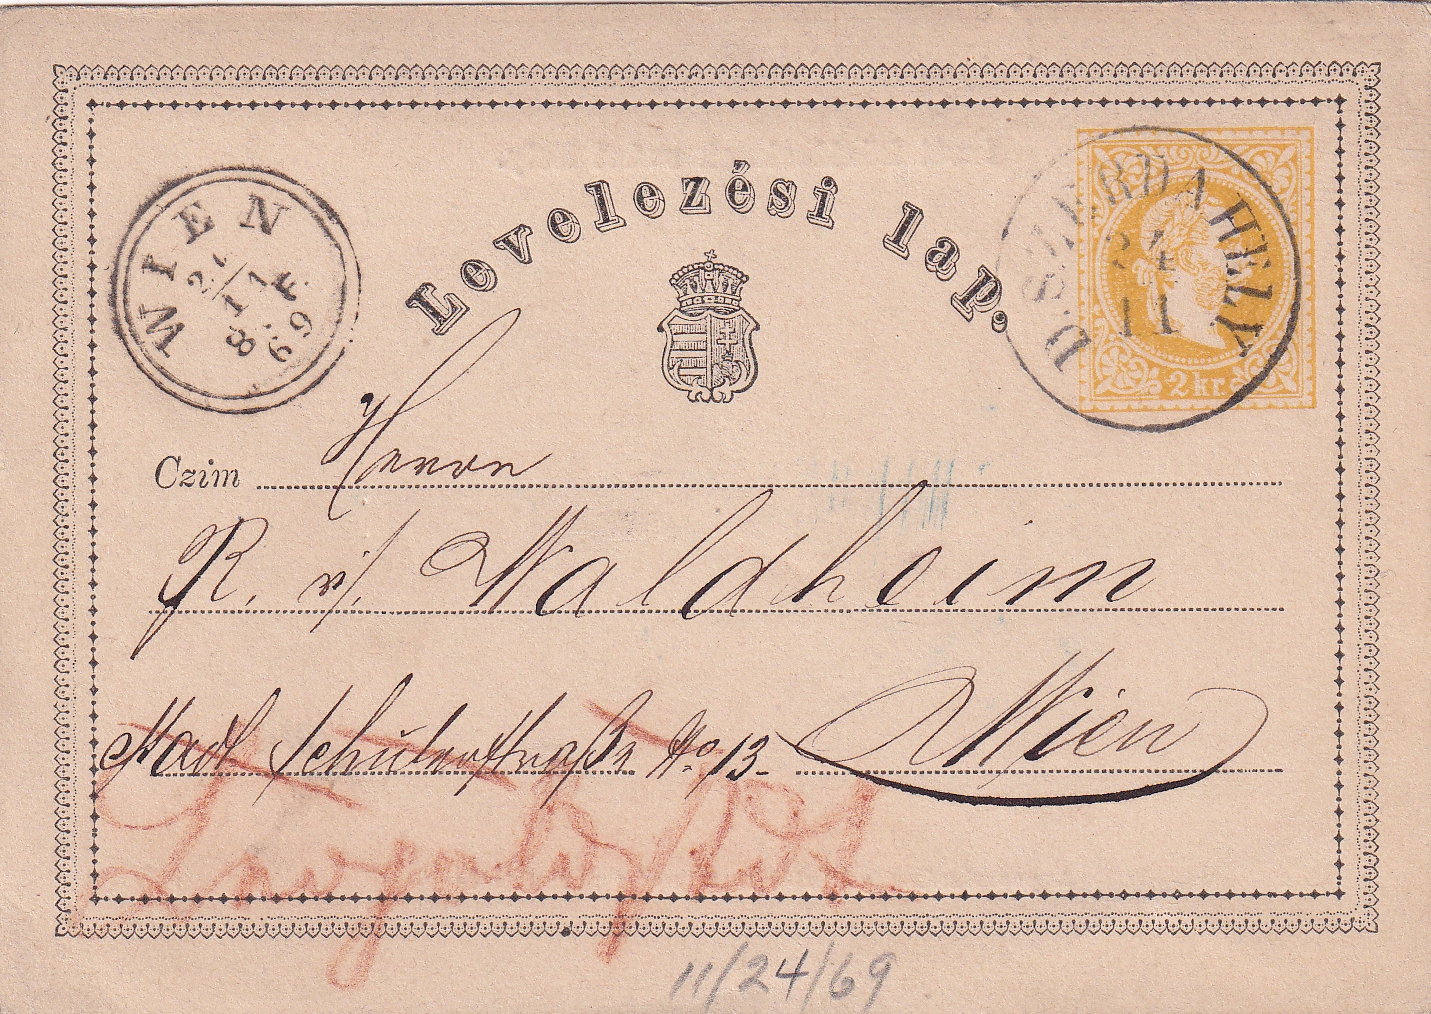 Levelezési lap.
WIEN
11
8. F.
69
D. SZERDAHELY
24
11
2 kr.
Czim
Herrn
R. v. Waldheim
Stadt Schulerstraße No 13
Wien
11/24/69